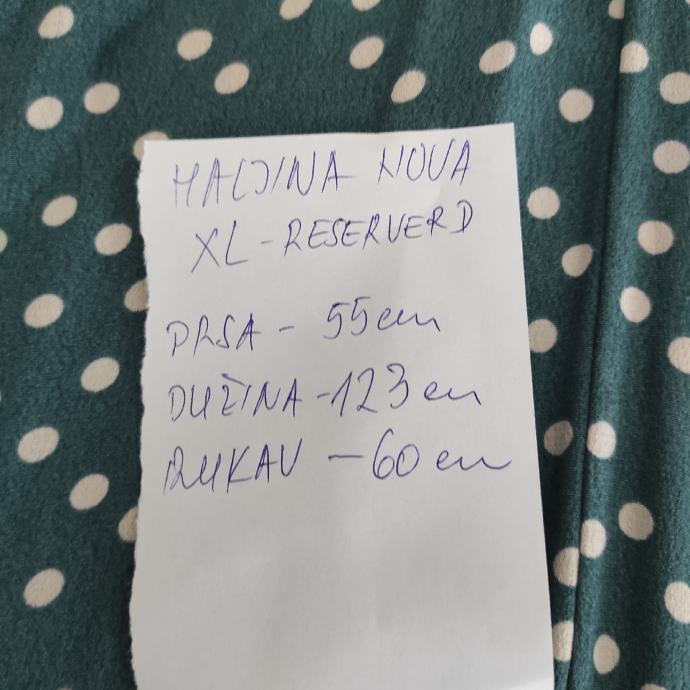 HALJINA NOVA
XL - RESERVERD
PRSA - 55 cm
DUŽINA - 123 cm
RUKAV - 60 cm